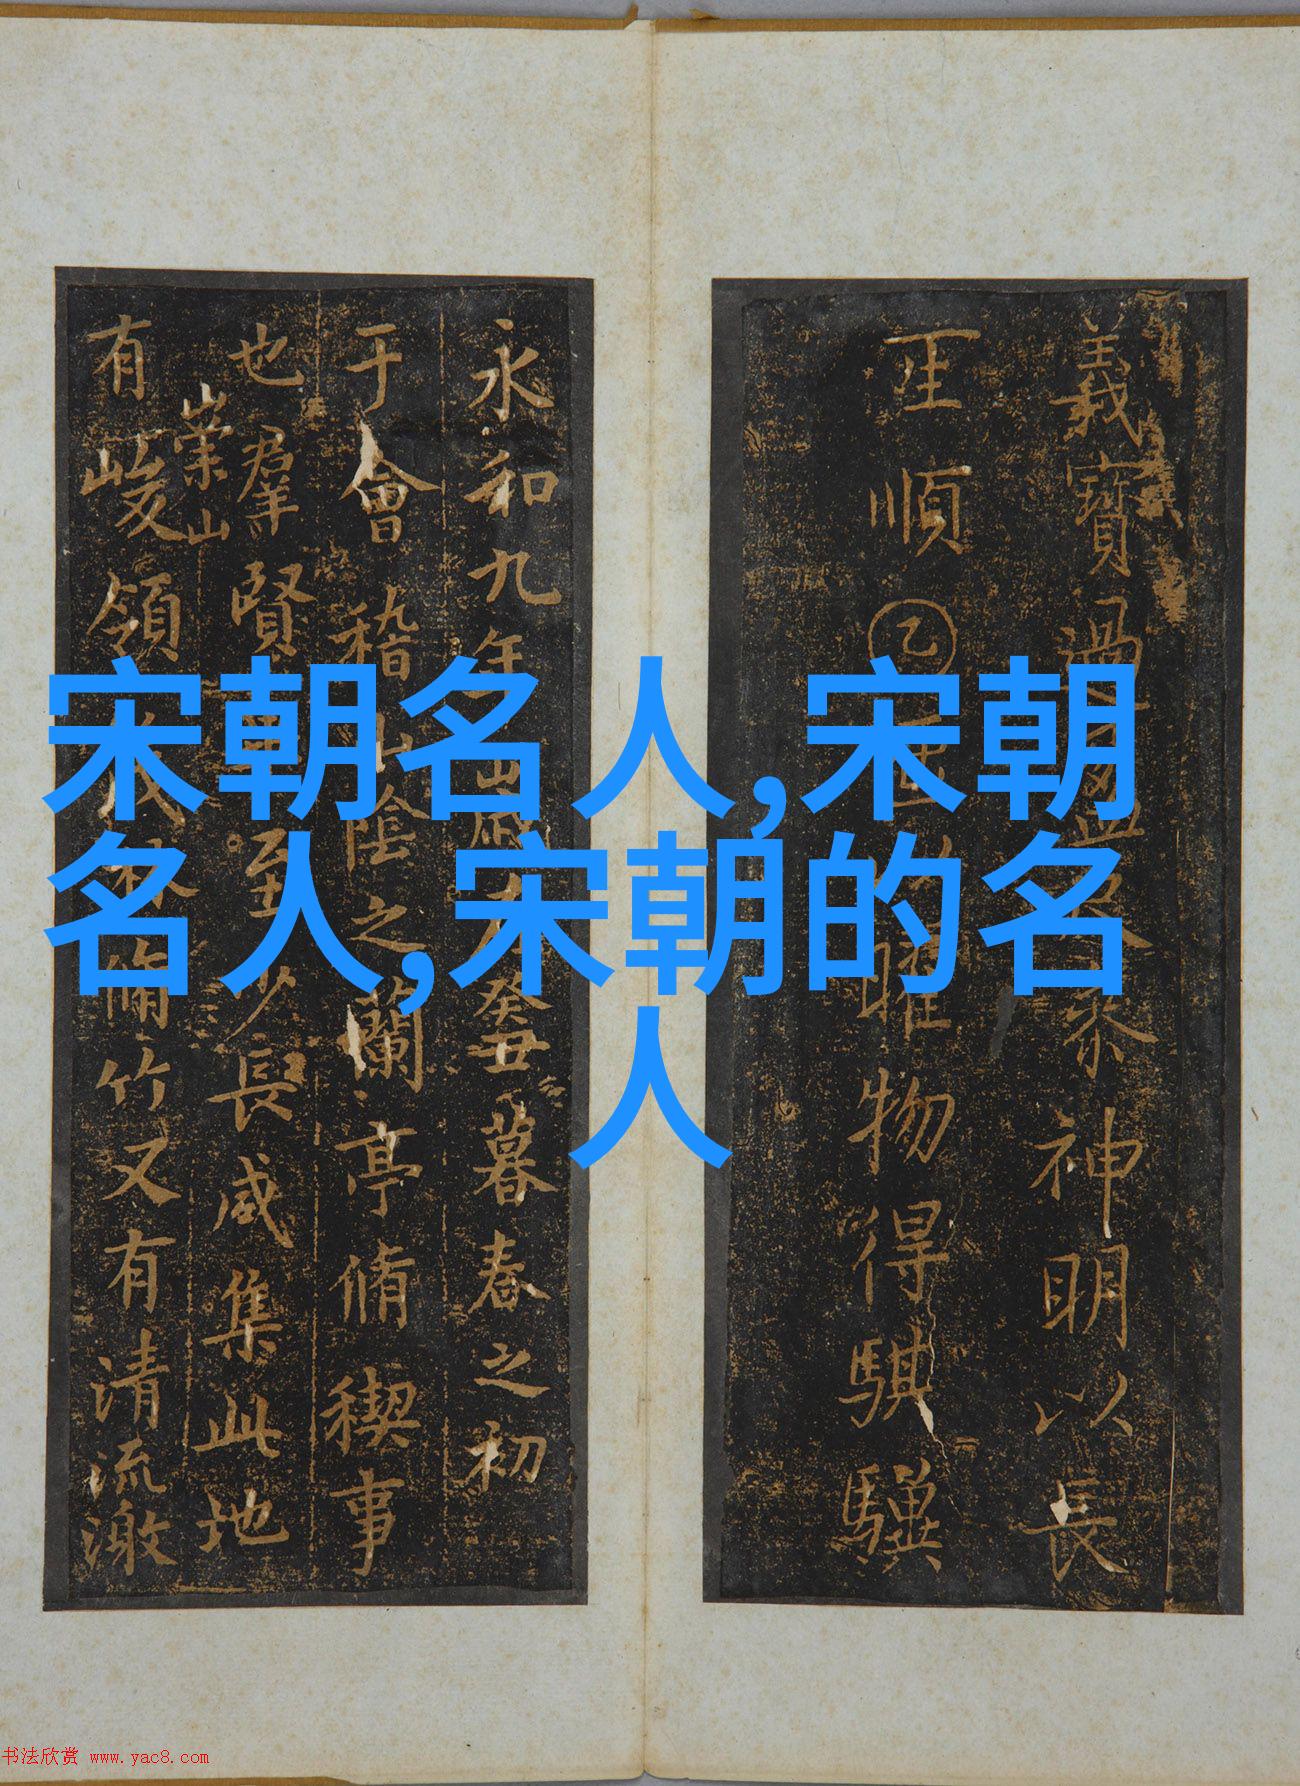 宋朝名人,宋朝
名人,宋朝的名
人
義寶過神明以長
順乙曜物得騏驥
永和九年歲在癸丑暮春之初
于會稽山陰之蘭亭脩稧事
也羣賢畢至少長咸集此地
崇山
有峻領茂林脩竹又有清流激
书法欣赏 www.yac8.com